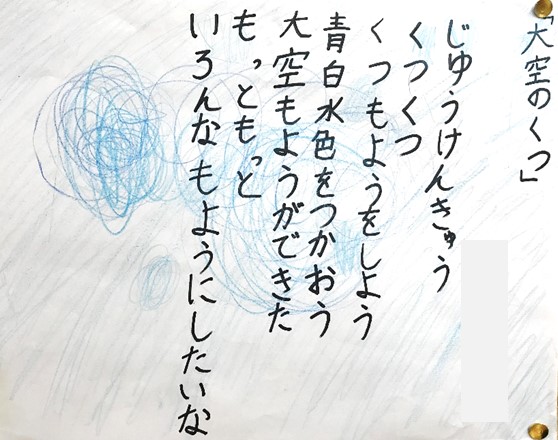 「大空のくつ」
じゆうけんきゅう
くつくつ
くつもようをしよう
青白水色をつかおう
大空もようができた
もっともっと
いろんなもようにしたいな